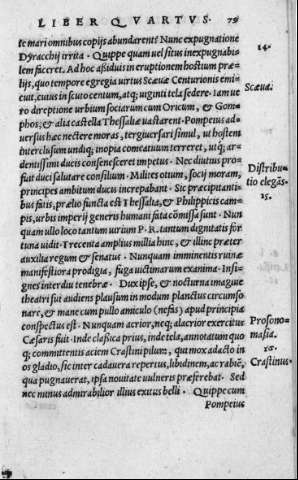 LIBER QVARTVS. 79
te mari omnibus copijs abundarent? Nunc expugnatione
Dyracchij irrita. Quippe quam uel situs inexpugnabi-
lem faceret. Ad hoc aßiduis in eruptionem hostium præ-
lijs, quo tempore egregia uirtus Scæuæ Centurionis emi-
cuit, cuius in scuto centum, atq; uiginti tela sedere. Iam ue
ro direptione urbium sociarum cum Oricum, & Gom-
phos, & alia castella Thessaliæ uastarent. Pompeius ad-
uersus hæc nectere moras, tergiuersari simul, ut hostem
interclusum undiq; inopia commeatuum terreret, utq; ar-
dentissimi ducis consenesceret impetus. Nec diutius pro-
fuit duci salutare consilium. Milites otium, socij moram,
principes ambitum ducis increpabant. Sic præcipitanti-
bus fatis, prælio sumcta est Thessalia, & Philippicis cam-
pis, urbis imperij generis humani fata cõmissa sunt. Nun
quam ullo loco tantum uirium P. R. tantum dignitatis for
tuna uidit. Trecenta amplius millia hinc, & illinc præter
auxilia regum & senatus. Nunquam imminentis ruinæ
manifestiora prodigia, fuga uictimarum examina. Insi-
gnes interdiu tenebræ. Dux ipse, & nocturna imagine
theatri sui audiens plausum in modum planctus circumso
nare, & mane cum pullo amiculo (nefas) apud principia
conspectus est. Nunquam acrior, neq; alacrior exercitus
Cæsaris fuit. Inde classica prius, inde tela, annotatum quo
q; committentis aciem Crastini pilum, qui mox adacto in
os gladio, sic inter cadauera repertus, libidinem, ac rabiē,
qua pugnauerat, ipsa nouitate uulneris præferebat. Sed
nec minus admirabilior illius exitus belli. Quippe cum
Pompeius
14.
Scæua.
Distribu-
tio elegãs.
15.
Prosono-
masia.
16.
Crastinus.